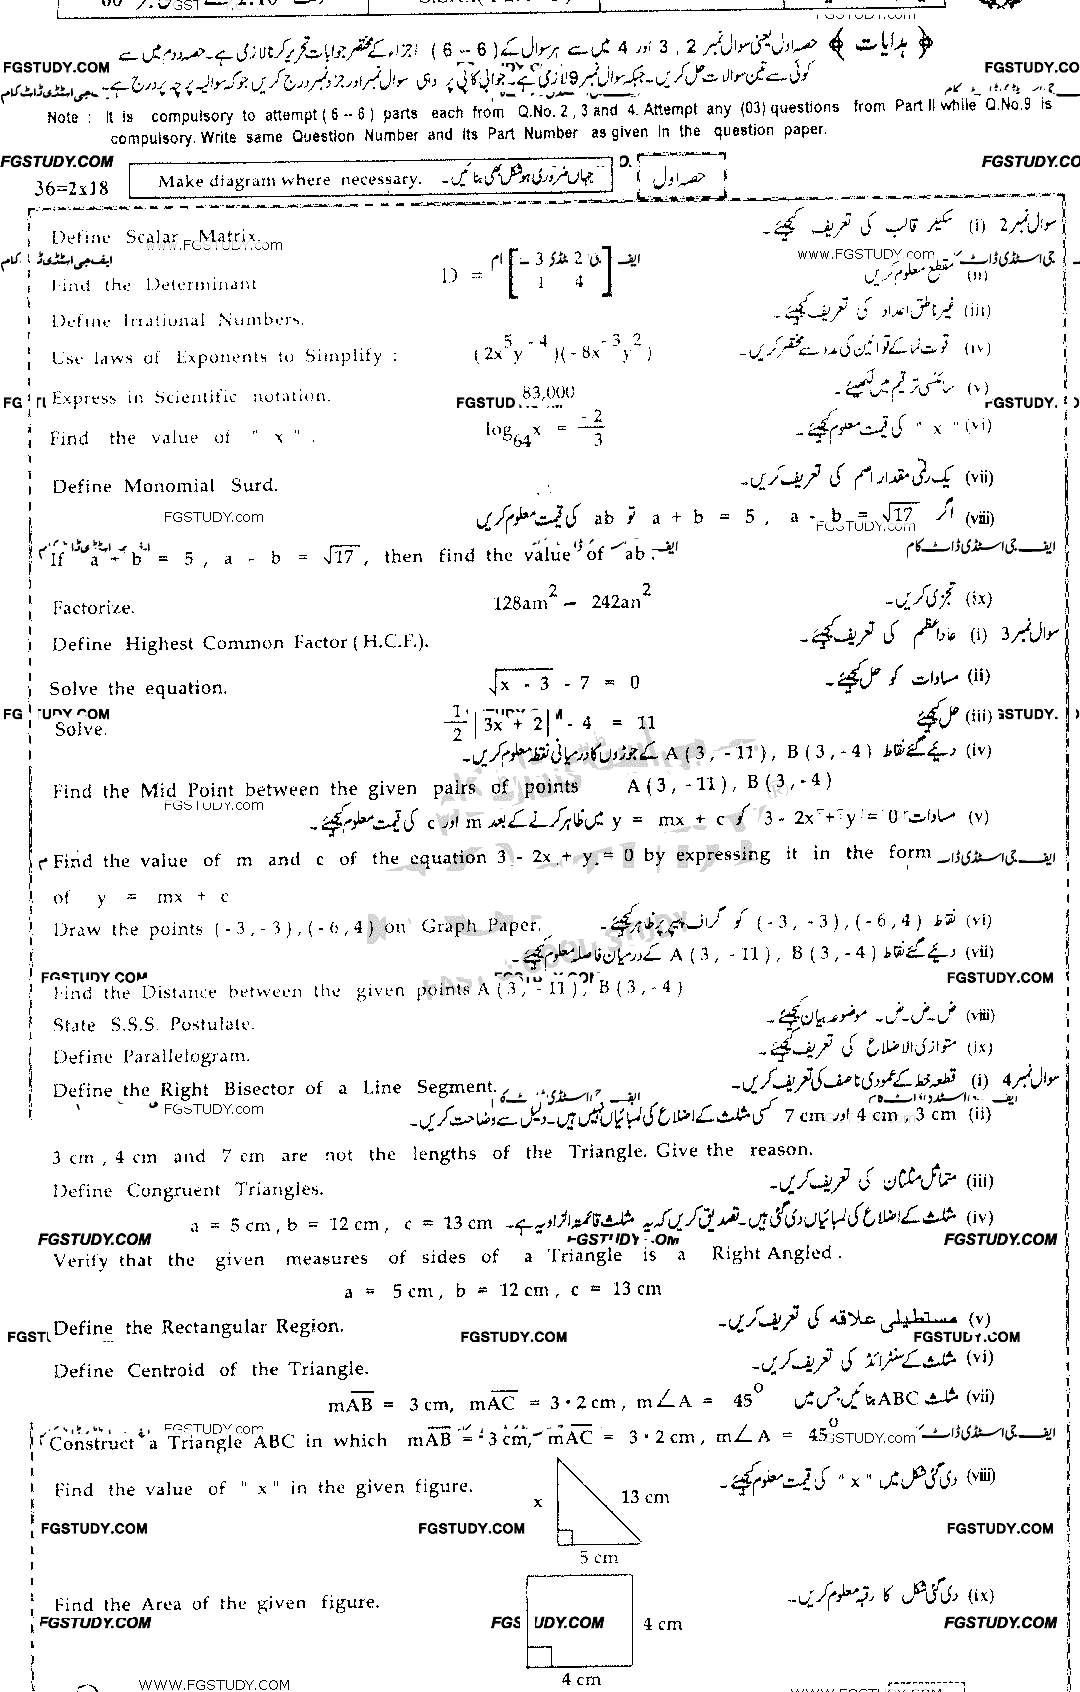 ﴿ ہدایات ﴾ حصہ اول یعنی سوال نمبر 2 ، 3 اور 4 میں سے ہر سوال کے (6 – 6) اجزاء کے مختصر جوابات تحریر کرنا لازمی ہے۔ حصہ دوم میں سے
FGSTUDY.COM
کوئی سے تین سوالات حل کریں۔ جبکہ سوال نمبر 9 لازمی ہے۔ جوابی کاپی پر وہی سوال نمبر اور جزو نمبر درج کریں جو کہ سوالیہ پرچہ پر درج ہے۔
Note : It is compulsory to attempt ( 6 – 6 ) parts each from Q.No. 2 , 3 and 4. Attempt any (03) questions from Part II while Q.No.9 is
compulsory. Write same Question Number and its Part Number as given in the question paper.
FGSTUDY.COM
36=2x18 Make diagram where necessary. جہاں ضروری ہو شکل بھی بنائیں۔ حصہ اول
Define Scalar Matrix. سوال نمبر 2 (i) سکیلر قالب کی تعریف کیجئے۔
www.FGSTUDY.com
Find the Determinant D = [ -3 2 ; 1 4 ] (ii) مقطع معلوم کریں
Define Irrational Numbers. (iii) غیر ناطق اعداد کی تعریف کیجئے۔
Use laws of Exponents to Simplify : ( 2x⁵y⁻⁴ )( - 8x⁻³y² ) (iv) قوت نما کے قوانین کی مدد سے مختصر کریں۔
Express in Scientific notation. 83,000 (v) سائنسی ترقیم میں لکھیئے۔
Find the value of " x " . log₆₄x = -2/3 (vi) " x " کی قیمت معلوم کیجئے۔
Define Monomial Surd. (vii) یک رقمی مقدار اصم کی تعریف کریں۔
FGSTUDY.com
(viii) اگر a + b = 5 , a - b = √17 تو ab کی قیمت معلوم کریں
If a + b = 5 , a - b = √17 , then find the value of ab .
Factorize. 128am² – 242an² (ix) تجزی کریں۔
Define Highest Common Factor ( H.C.F.). سوال نمبر 3 (i) عاد اعظم کی تعریف کیجئے۔
Solve the equation. √x - 3 - 7 = 0 (ii) مساوات کو حل کیجئے۔
Solve. 1/2 | 3x + 2 | - 4 = 11 (iii) حل کیجئے
(iv) دیئے گئے نقاط A ( 3 , -11 ) , B ( 3 , -4 ) کے جوڑوں کا درمیانی نقطہ معلوم کریں۔
Find the Mid Point between the given pairs of points A ( 3 , -11 ) , B ( 3 , -4 )
FGSTUDY.com
(v) مساوات 3 - 2x + y = 0 کو y = mx + c میں ظاہر کرنے کے بعد m اور c کی قیمت معلوم کیجئے۔
Find the value of m and c of the equation 3 - 2x + y = 0 by expressing it in the form
of y = mx + c
Draw the points ( -3 , -3 ) , ( -6 , 4 ) on Graph Paper. (vi) نقاط ( -3 , -3 ) , ( -6 , 4 ) کو گراف پیپر پر ظاہر کیجئے۔
(vii) دیئے گئے نقاط A ( 3 , -11 ) , B ( 3 , -4 ) کے درمیان فاصلہ معلوم کیجئے۔
FGSTUDY.COM
Find the Distance between the given points A ( 3 , -11 ) , B ( 3 , -4 )
State S.S.S. Postulate. (viii) ض۔ض۔ض۔ موضوعہ بیان کیجئے۔
Define Parallelogram. (ix) متوازی الاضلاع کی تعریف کیجئے۔
Define the Right Bisector of a Line Segment. سوال نمبر 4 (i) قطعہ خط کے عمودی ناصف کی تعریف کریں۔
FGSTUDY.com
(ii) 3 cm , 4 cm اور 7 cm کسی مثلث کے اضلاع کی لمبائیاں نہیں ہیں۔ دلیل سے وضاحت کریں۔
3 cm , 4 cm and 7 cm are not the lengths of the Triangle. Give the reason.
Define Congruent Triangles. (iii) متماثل مثلثان کی تعریف کریں۔
(iv) مثلث کے اضلاع کی لمبائیاں دی گئی ہیں۔ تصدیق کریں کہ یہ مثلث قائمۃ الزاویہ ہے۔ a = 5 cm , b = 12 cm , c = 13 cm
FGSTUDY.COM
Verify that the given measures of sides of a Triangle is a Right Angled .
a = 5 cm , b = 12 cm , c = 13 cm
Define the Rectangular Region. (v) مستطیلی علاقہ کی تعریف کریں۔
FGSTUDY.COM
Define Centroid of the Triangle. (vi) مثلث کے سنٹرائڈ کی تعریف کریں۔
(vii) مثلث ABC بنائیں جس میں mAB = 3 cm, mAC = 3·2 cm , m∠A = 45⁰
Construct a Triangle ABC in which mAB = 3 cm, mAC = 3·2 cm , m∠A = 45⁰
Find the value of " x " in the given figure. x 13 cm 5 cm (viii) دی گئی شکل میں " x " کی قیمت معلوم کیجئے۔
FGSTUDY.COM FGSTUDY.COM FGSTUDY.COM
Find the Area of the given figure. 4 cm 4 cm (ix) دی گئی شکل کا رقبہ معلوم کریں۔
FGSTUDY.COM FGSTUDY.COM
WWW.FGSTUDY.COM